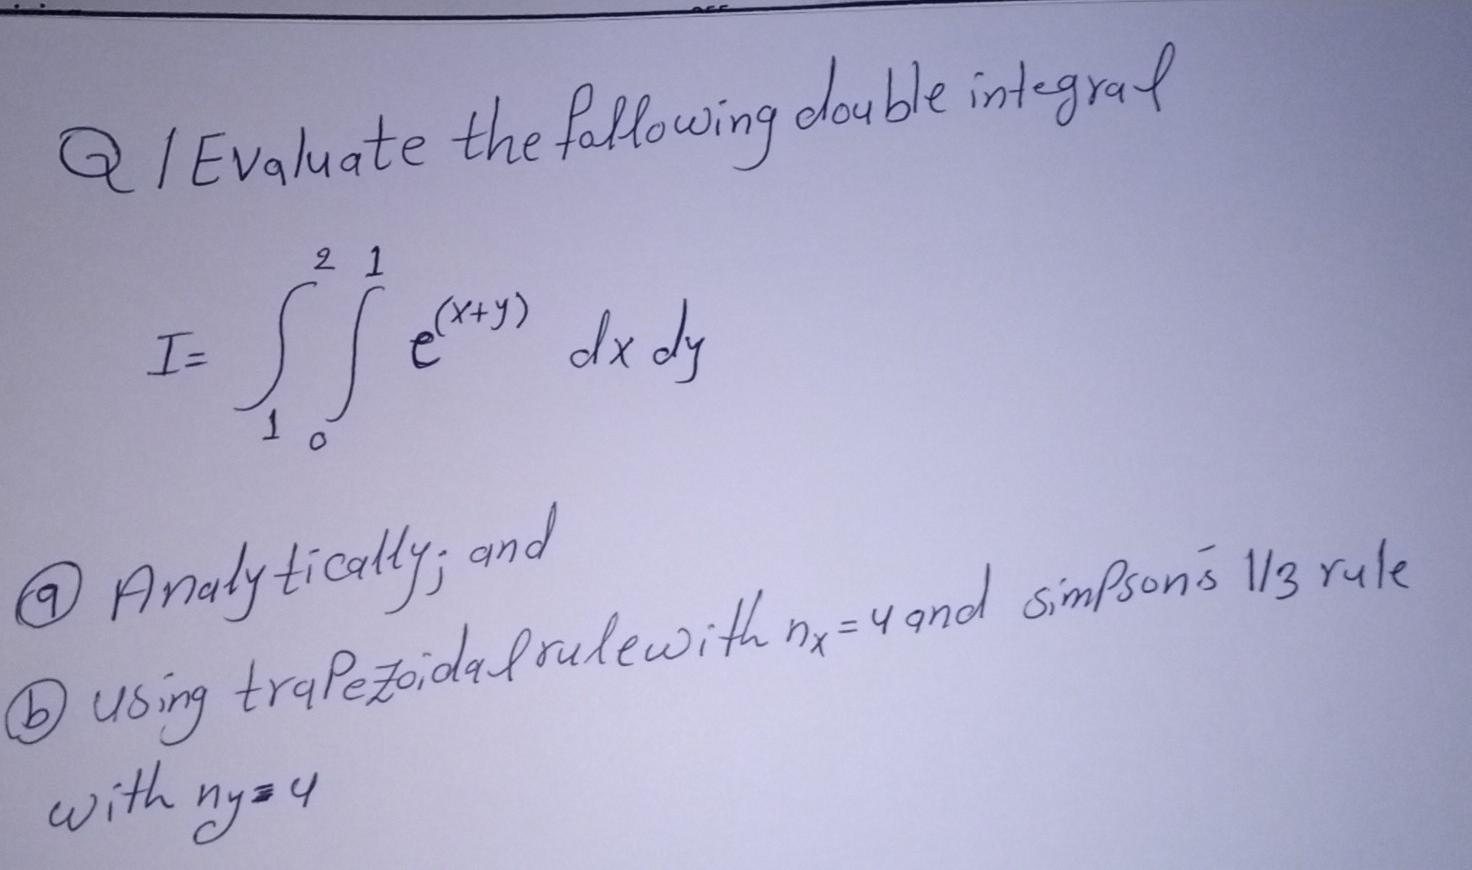 Q / Evaluate the following double integral
I = ∫₁² ∫₀¹ e^(x+y) dx dy
ⓐ Analytically; and
ⓑ using trapezoidal rule with nx = 4 and simpson's 1/3 rule
with ny = 4